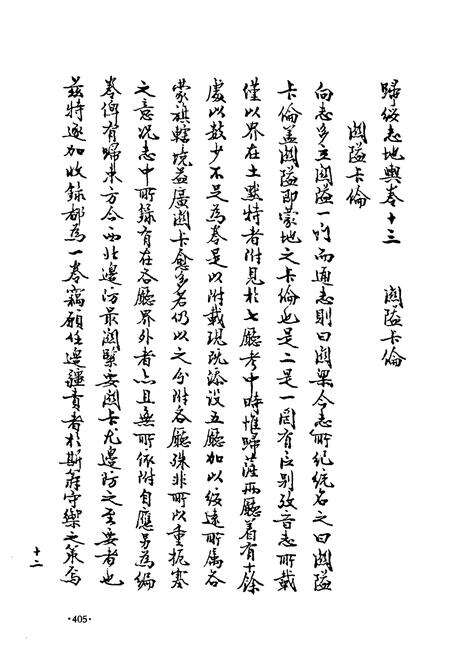 歸綏志地輿卷十三　關隘卡倫
關隘卡倫
向志多立關隘一門而通志則曰關梁今志所紀統名之曰關隘
卡倫蓋關隘即蒙地之卡倫也是二是一固有區別考音志所載
僅以界在土默特者附見於七廳考中時惟歸薩兩廳着有十餘
處以數少不足為卷是以附載現既添設五廳加以綏遠所屬各
蒙旗轄境益廣關卡愈多若仍以之分附各廳殊非所以重扼塞
之意況志中所錄有在各廳界外者亦且無所依附自應另為編
卷俾有歸束方今西北邊防最關緊要關卡尤邊防之至要者也
茲特逐加收錄都為一卷竊願任邊疆責者於斯籌守禦之策焉
十二
·405·